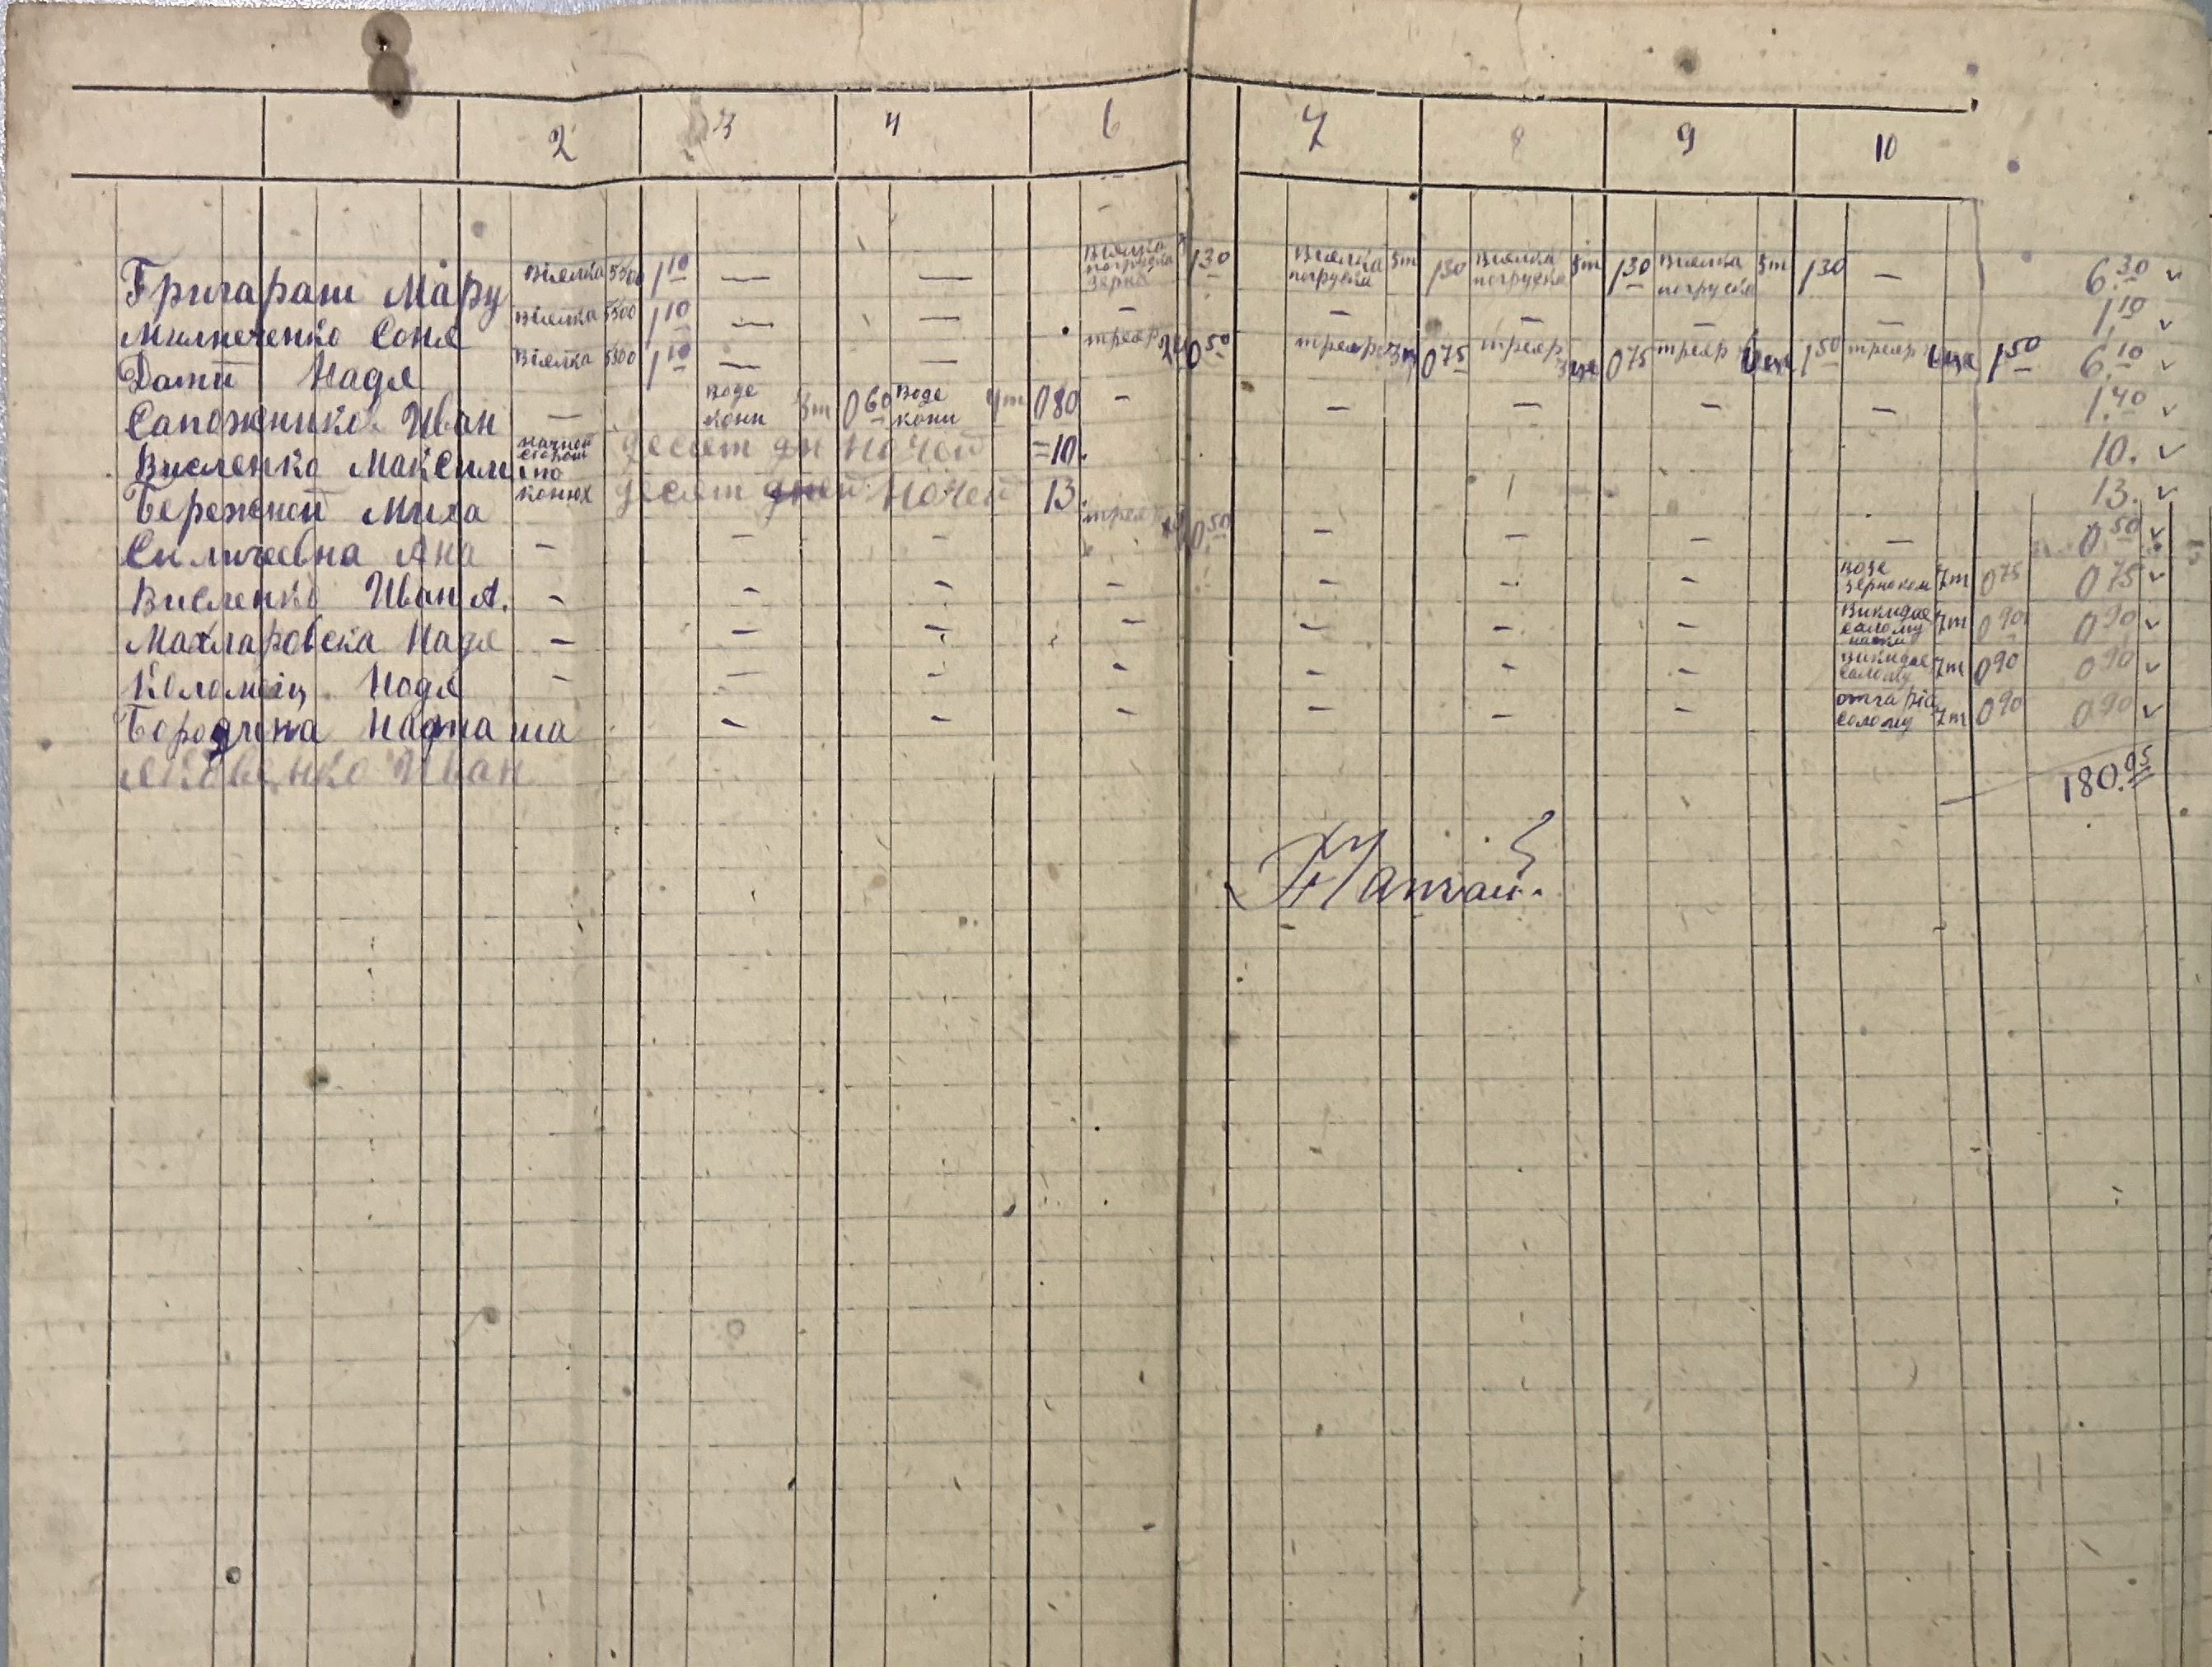 2 3 4 6 7 8 9 10
Григараш Мару Віялка 5500 1 10 — — Віялка погрузка зерна 1 30 Віялка погрузка 5т 1 30 Віялка погрузка 5т 1 30 Віялка погрузка 5т 1 30 — 6.30 ✓
Соня Віялка 5500 1 10 — — — — — — — 1 10 ✓
Надя Віялка 5500 1 10 — — триер 0 50 триер 0 75 триер 0 75 триер 1 50 триер 1 50 6.10 ✓
Сапожнико Иван — Воде кони 3т 0 60 Воде кони 4т 0 80 — — — — — 1.40 ✓
Висленко Максим десят дн ночей =10. 10. ✓
Бережной Миха конюх десят дней ночей 13. 13. ✓
Ана — — — триер 0.50 — — — — 0 50 ✓
Висленко Иван А. — — — — — — — возе 7т 0 75 0 75 ✓
Махларовска Надя — — — — — — — Викидае солому 7т 0 90 0 90 ✓
Коломоіц Надя — — — — — — — Викидае солому 7т 0 90 0 90 ✓
Бородина Наташа — — — — — — солому 7т 0 90 0 90 ✓
Яковенко Иван
180.95